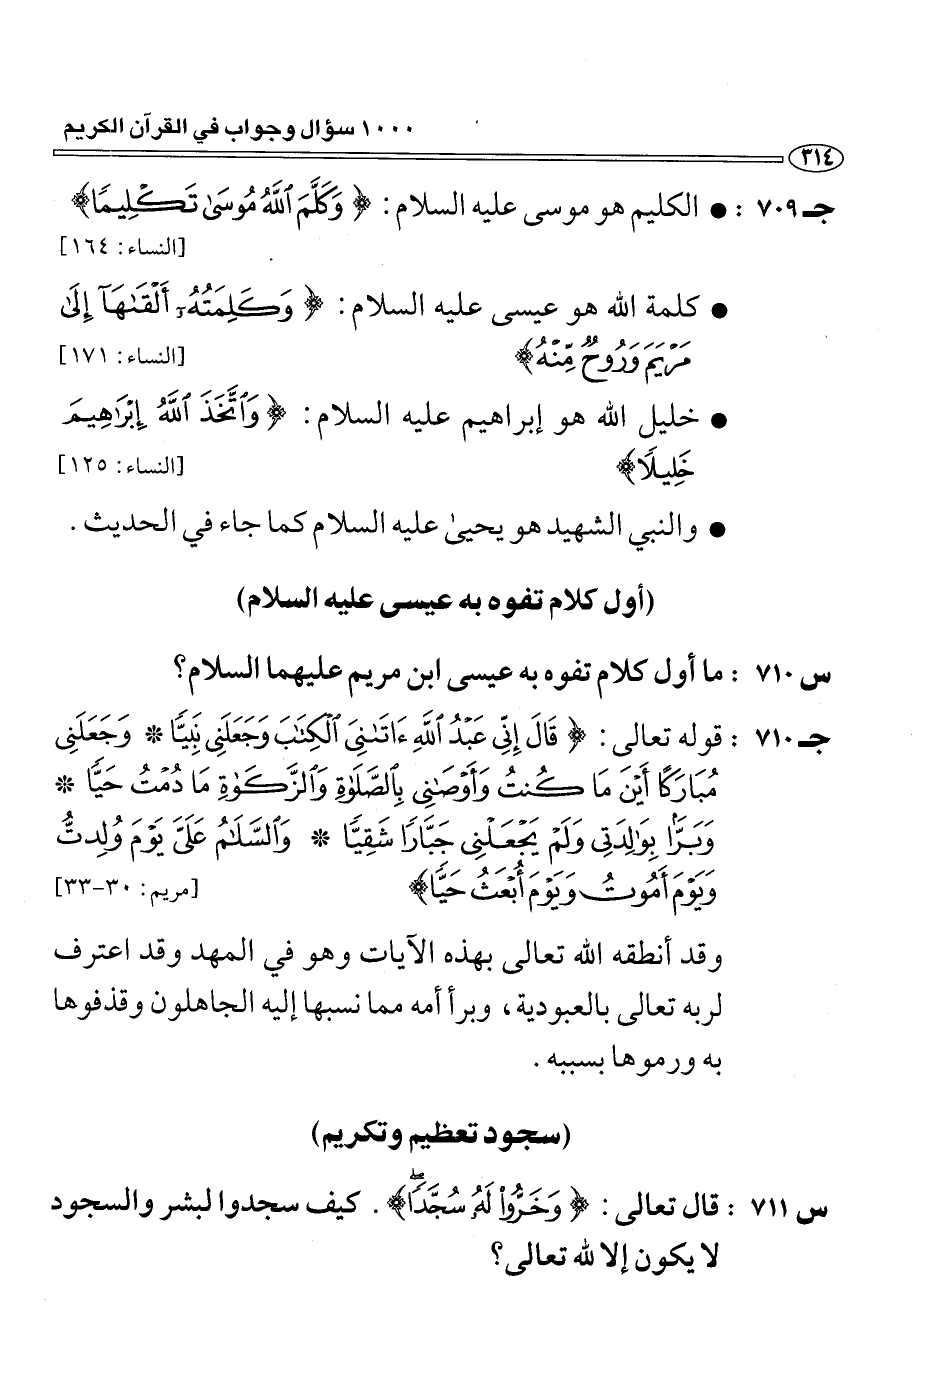 ١٠٠٠ سؤال وجواب في القرآن الكريم
٣١٤
جـ ٧٠٩ : ● الكليم هو موسى عليه السلام: ﴿ وَكَلَّمَ ٱللَّهُ مُوسَىٰ تَكْلِيمًا﴾
[النساء: ١٦٤]
● كلمة الله هو عيسى عليه السلام: ﴿ وَكَلِمَتُهُۥٓ أَلْقَىٰهَآ إِلَىٰ
مَرْيَمَ وَرُوحٌ مِّنْهُ﴾ [النساء: ١٧١]
● خليل الله هو إبراهيم عليه السلام: ﴿ وَٱتَّخَذَ ٱللَّهُ إِبْرَٰهِيمَ
خَلِيلًا﴾ [النساء: ١٢٥]
● والنبي الشهيد هو يحيىٰ عليه السلام كما جاء في الحديث .
(أول كلام تفوه به عيسى عليه السلام)
س ٧١٠ : ما أول كلام تفوه به عيسى ابن مريم عليهما السلام؟
جـ ٧١٠ : قوله تعالى: ﴿ قَالَ إِنِّي عَبْدُ ٱللَّهِ ءَاتَىٰنِيَ ٱلْكِتَٰبَ وَجَعَلَنِي نَبِيًّا * وَجَعَلَنِي
مُبَارَكًا أَيْنَ مَا كُنتُ وَأَوْصَٰنِي بِٱلصَّلَوٰةِ وَٱلزَّكَوٰةِ مَا دُمْتُ حَيًّا *
وَبَرًّۢا بِوَٰلِدَتِي وَلَمْ يَجْعَلْنِي جَبَّارًا شَقِيًّا * وَٱلسَّلَٰمُ عَلَيَّ يَوْمَ وُلِدتُّ
وَيَوْمَ أَمُوتُ وَيَوْمَ أُبْعَثُ حَيًّا﴾ [مريم: ٣٠-٣٣]
وقد أنطقه الله تعالى بهذه الآيات وهو في المهد وقد اعترف
لربه تعالى بالعبودية، وبرأ أمه مما نسبها إليه الجاهلون وقذفوها
به ورموها بسببه .
(سجود تعظيم وتكريم)
س ٧١١ : قال تعالى: ﴿ وَخَرُّوا۟ لَهُۥ سُجَّدًاۖ﴾ . كيف سجدوا لبشر والسجود
لا يكون إلا لله تعالى؟